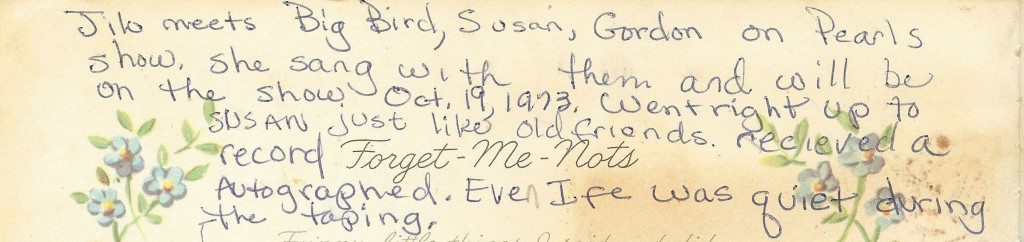 Jilo meets Big Bird, Susan, Gordon on Pearls
show. She sang with them and will be
on the show Oct. 19, 1973. Went right up to
SUSAN just like old friends. recieved a
record Forget-Me-Nots
Autographed. Even Ife was quiet during
the taping.